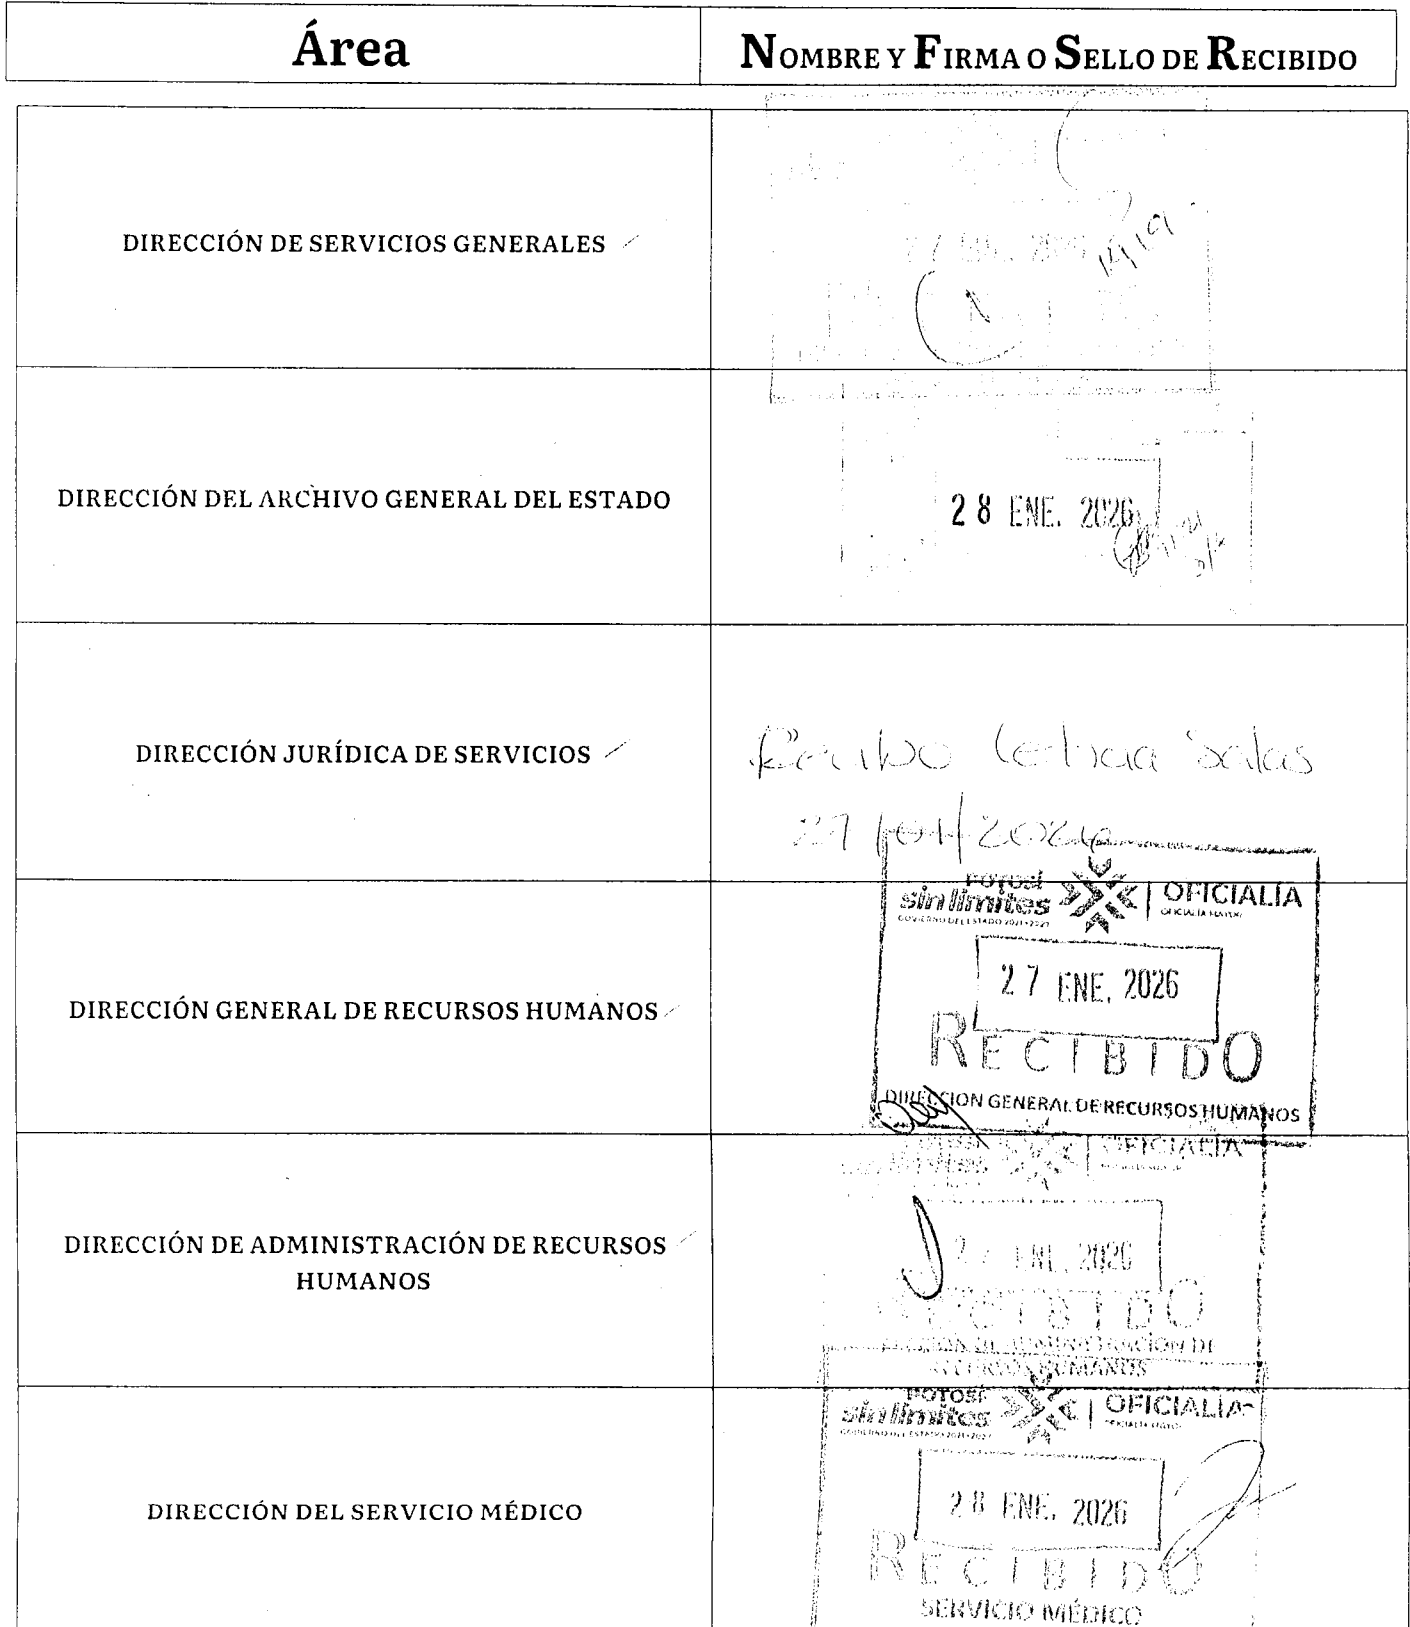 Área
NOMBRE Y FIRMA O SELLO DE RECIBIDO
DIRECCIÓN DE SERVICIOS GENERALES
27 ENE. 2026
DIRECCIÓN DEL ARCHIVO GENERAL DEL ESTADO
28 ENE. 2026
DIRECCIÓN JURÍDICA DE SERVICIOS
Recibo Leticia Salas
27/01/2026
DIRECCIÓN GENERAL DE RECURSOS HUMANOS
POTOSÍ
sin límites
GOBIERNO DEL ESTADO 2021-2027
OFICIALÍA
OFICIALÍA MAYOR
27 ENE. 2026
RECIBIDO
DIRECCION GENERAL DE RECURSOS HUMANOS
DIRECCIÓN DE ADMINISTRACIÓN DE RECURSOS
HUMANOS
OFICIALÍA
27 ENE. 2026
RECIBIDO
DIRECCIÓN DE ADMINISTRACIÓN DE
RECURSOS HUMANOS
DIRECCIÓN DEL SERVICIO MÉDICO
POTOSÍ
sin límites
GOBIERNO DEL ESTADO 2021-2027
OFICIALÍA
OFICIALÍA MAYOR
28 ENE. 2026
RECIBIDO
SERVICIO MÉDICO